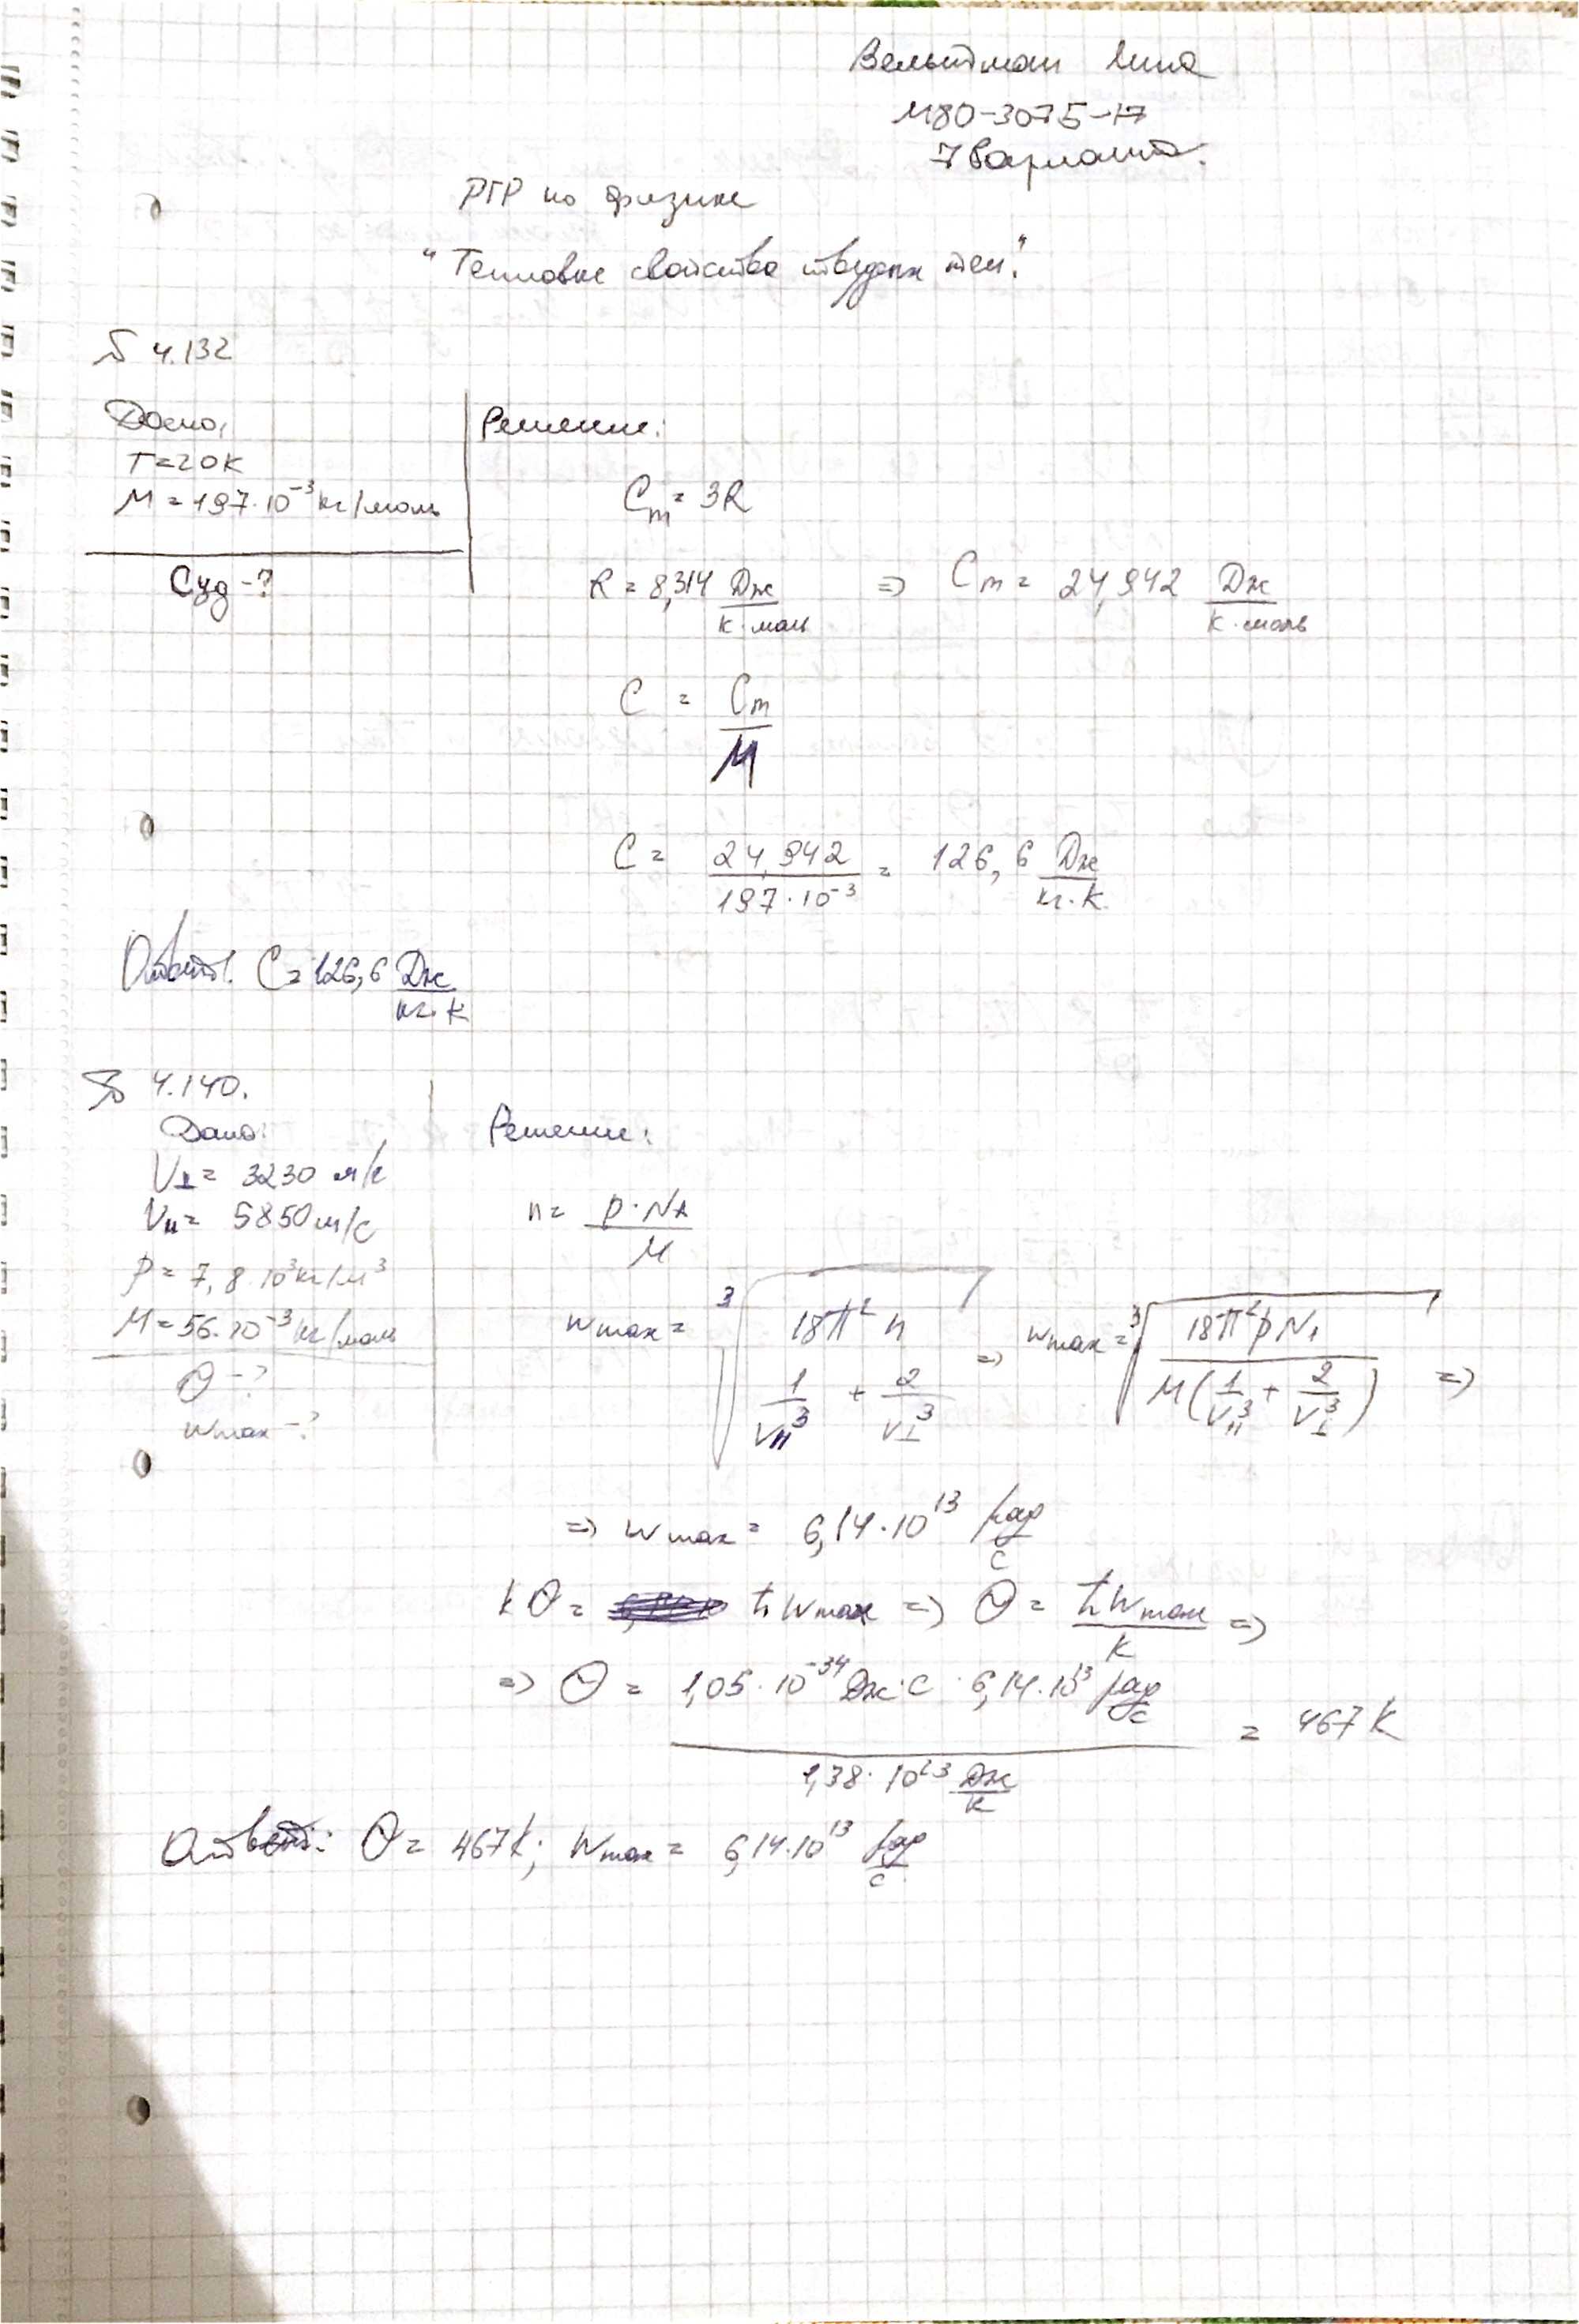 Вельтман Лина
М80-307Б-17
7 вариант.
РГР по физике
"Тепловые свойства твердых тел."
№ 4.132
Дано:
T=20K
M=197·10⁻³ кг/моль
Cуд-?
Решение:
Cm = 3R
R = 8,314 Дж/К·моль => Cm = 24,942 Дж/К·моль
C = Cm/M
C = 24,942/197·10⁻³ = 126,6 Дж/кг·К
Ответ: C = 126,6 Дж/кг·К
№ 4.140.
Дано:
V⊥ = 3230 м/с
V∥ = 5850 м/с
ρ = 7,8·10³ кг/м³
M = 56·10⁻³ кг/моль
Θ -?
wmax -?
Решение:
n = ρ·NA/M
wmax = ∛(18π²n/(1/V∥³ + 2/V⊥³)) => wmax = ∛(18π²ρNA/(M(1/V∥³ + 2/V⊥³))) =>
=> wmax = 6,14·10¹³ рад/с
kΘ = ħwmax => Θ = ħwmax/k =>
=> Θ = 1,05·10⁻³⁴ Дж·с · 6,14·10¹³ рад/с / 1,38·10²³ Дж/К = 467 K
Ответ: Θ = 467K; wmax = 6,14·10¹³ рад/с